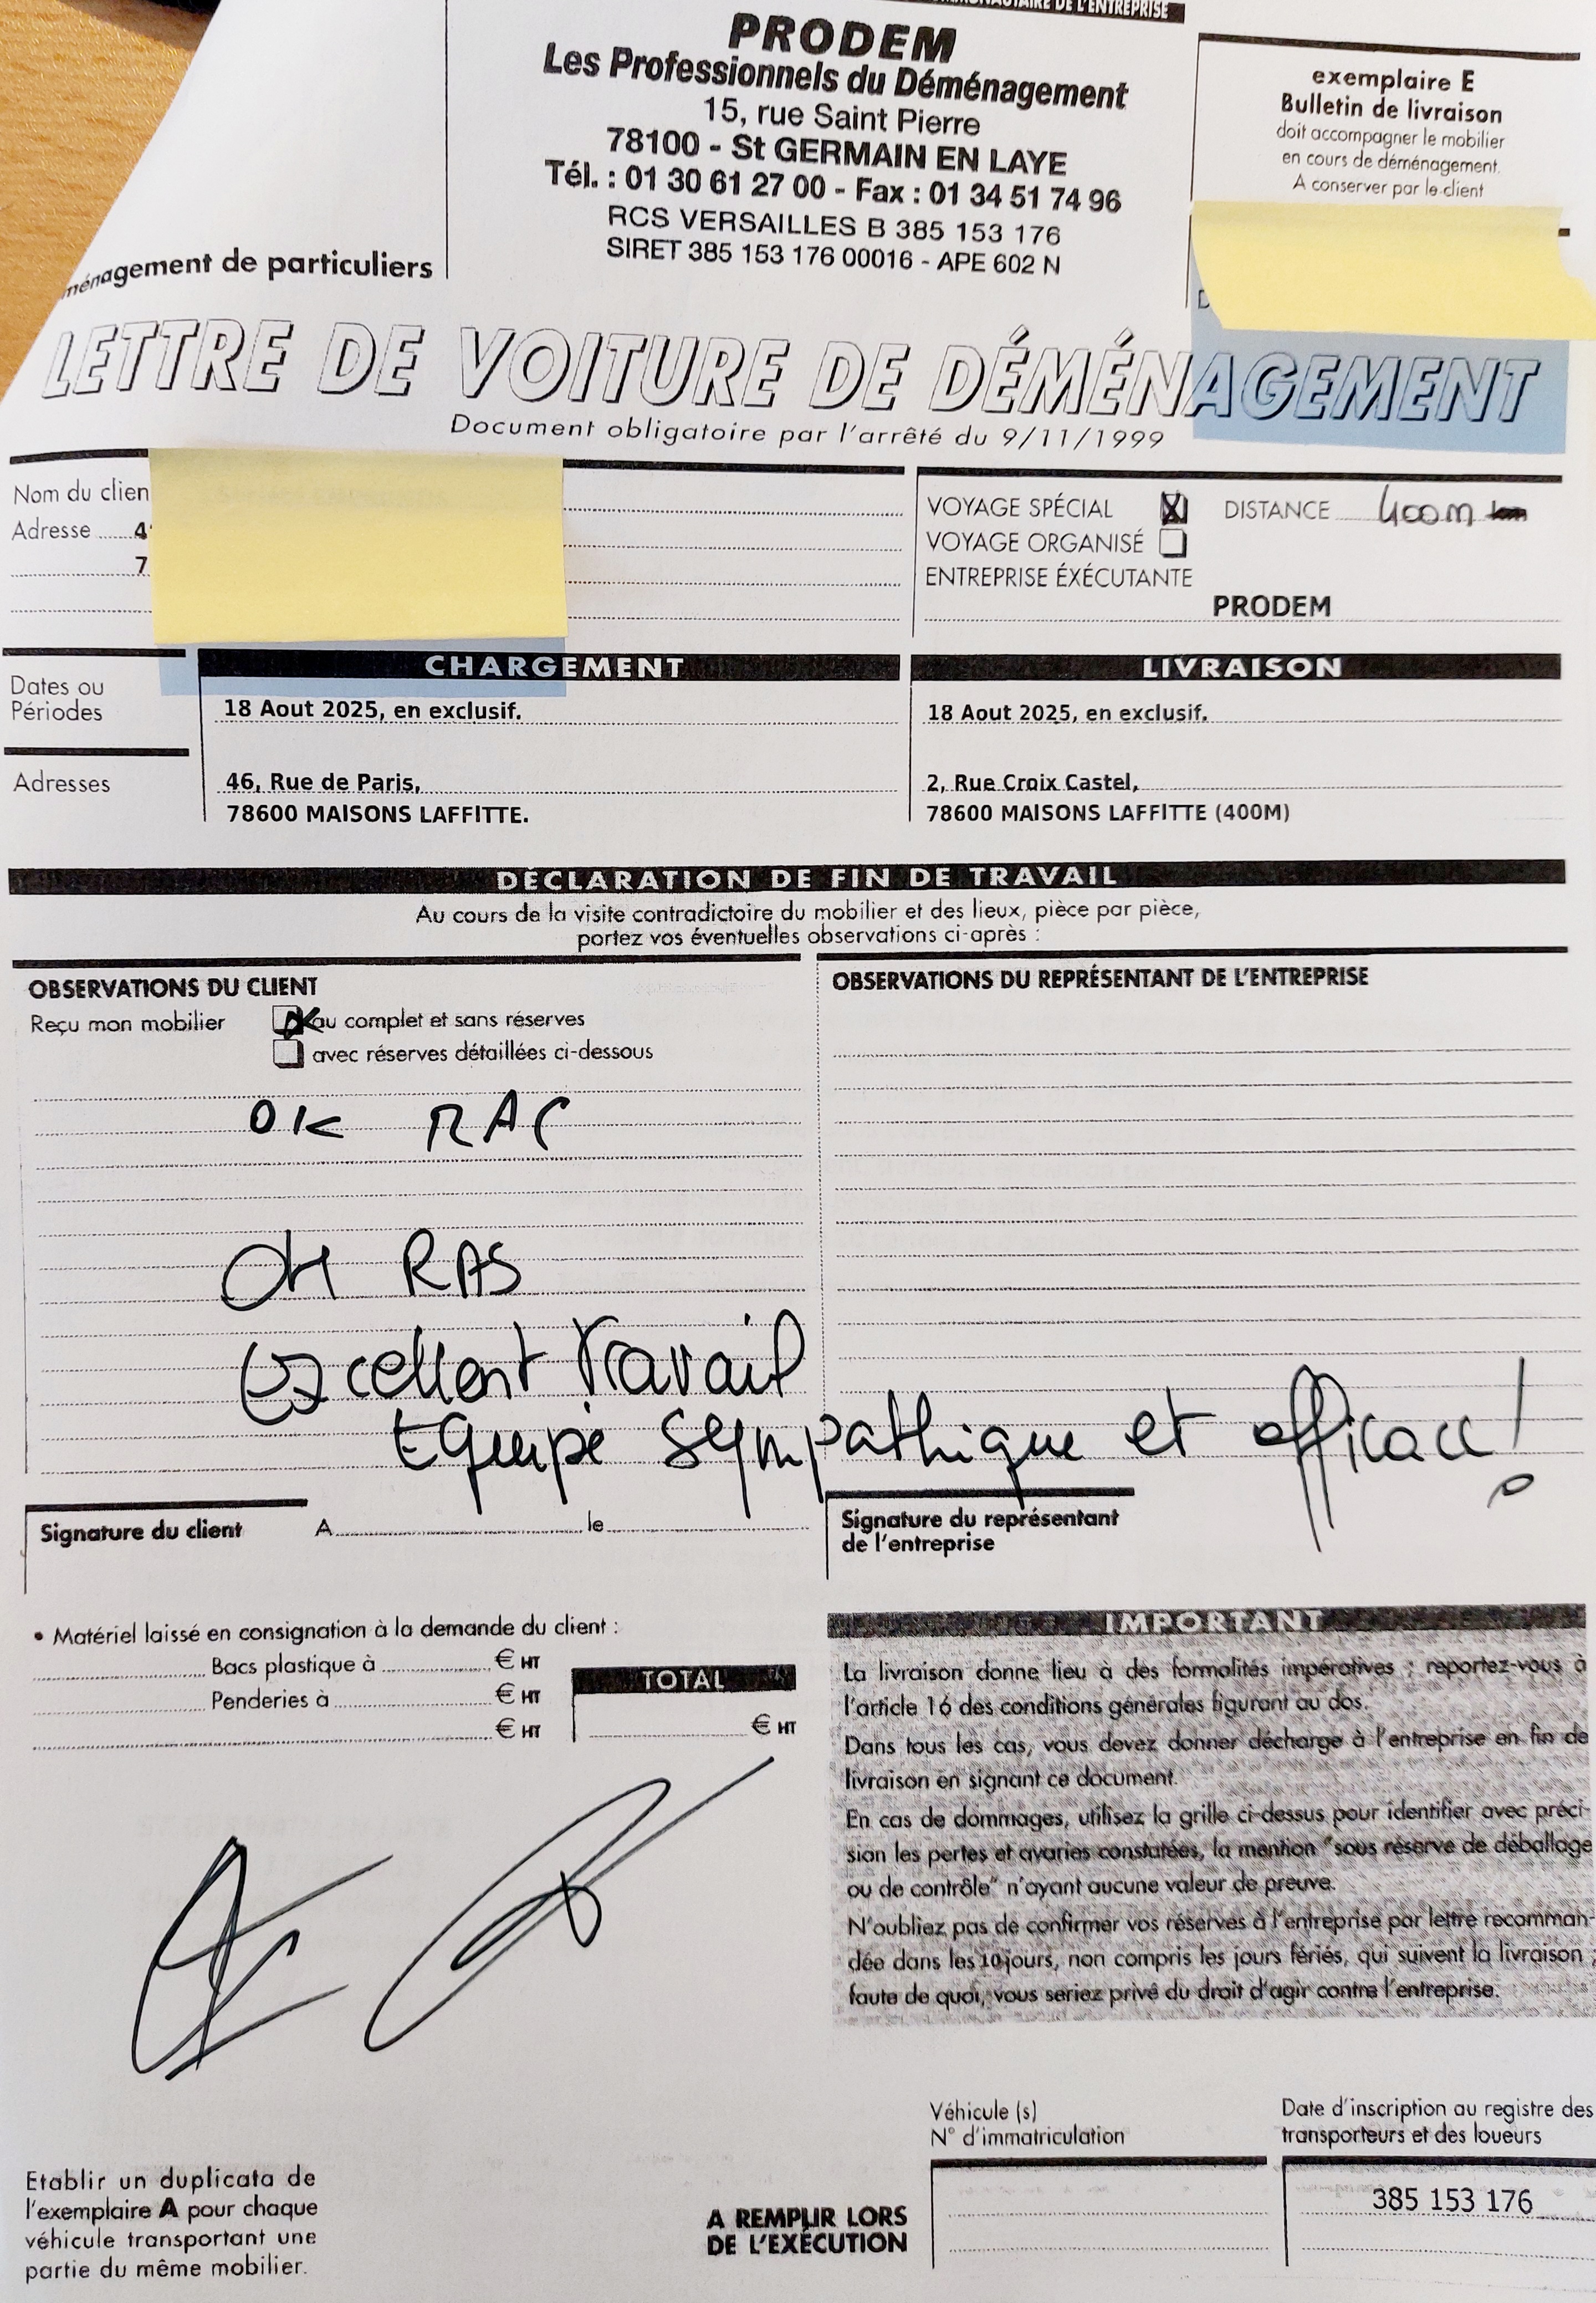 DE L'ENTREPRISE
PRODEM
Les Professionnels du Déménagement
15, rue Saint Pierre
78100 - St GERMAIN EN LAYE
Tél. : 01 30 61 27 00 - Fax : 01 34 51 74 96
RCS VERSAILLES B 385 153 176
SIRET 385 153 176 00016 - APE 602 N
exemplaire E
Bulletin de livraison
doit accompagner le mobilier
en cours de déménagement.
A conserver par le client
ménagement de particuliers
LETTRE DE VOITURE DE DÉMÉNAGEMENT
Document obligatoire par l'arrêté du 9/11/1999
Nom du clien
Adresse 4
7
VOYAGE SPÉCIAL X DISTANCE 400m
VOYAGE ORGANISÉ
ENTREPRISE ÉXÉCUTANTE
PRODEM
CHARGEMENT
LIVRAISON
Dates ou
Périodes
18 Aout 2025, en exclusif.
18 Aout 2025, en exclusif.
Adresses
46, Rue de Paris,
78600 MAISONS LAFFITTE.
2, Rue Croix Castel,
78600 MAISONS LAFFITTE (400M)
DÉCLARATION DE FIN DE TRAVAIL
Au cours de la visite contradictoire du mobilier et des lieux, pièce par pièce,
portez vos éventuelles observations ci-après :
OBSERVATIONS DU CLIENT
Reçu mon mobilier
au complet et sans réserves
avec réserves détaillées ci-dessous
OK RAS
OK RAS
Excellent travail
Equipe sympathique et efficace !
OBSERVATIONS DU REPRÉSENTANT DE L'ENTREPRISE
Signature du client
A le
Signature du représentant
de l'entreprise
• Matériel laissé en consignation à la demande du client :
Bacs plastique à € HT
Penderies à € HT
€ HT
TOTAL
€ HT
IMPORTANT
La livraison donne lieu à des formalités impératives ; reportez-vous à
l'article 16 des conditions générales figurant au dos.
Dans tous les cas, vous devez donner décharge à l'entreprise en fin de
livraison en signant ce document.
En cas de dommages, utilisez la grille ci-dessus pour identifier avec préci-
sion les pertes et avaries constatées, la mention "sous réserve de déballage
ou de contrôle" n'ayant aucune valeur de preuve.
N'oubliez pas de confirmer vos réserves à l'entreprise par lettre recomman-
dée dans les 10 jours, non compris les jours fériés, qui suivent la livraison ;
faute de quoi, vous seriez privé du droit d'agir contre l'entreprise.
Etablir un duplicata de
l'exemplaire A pour chaque
véhicule transportant une
partie du même mobilier.
A REMPLIR LORS
DE L'EXÉCUTION
Véhicule (s)
N° d'immatriculation
Date d'inscription au registre des
transporteurs et des loueurs
385 153 176